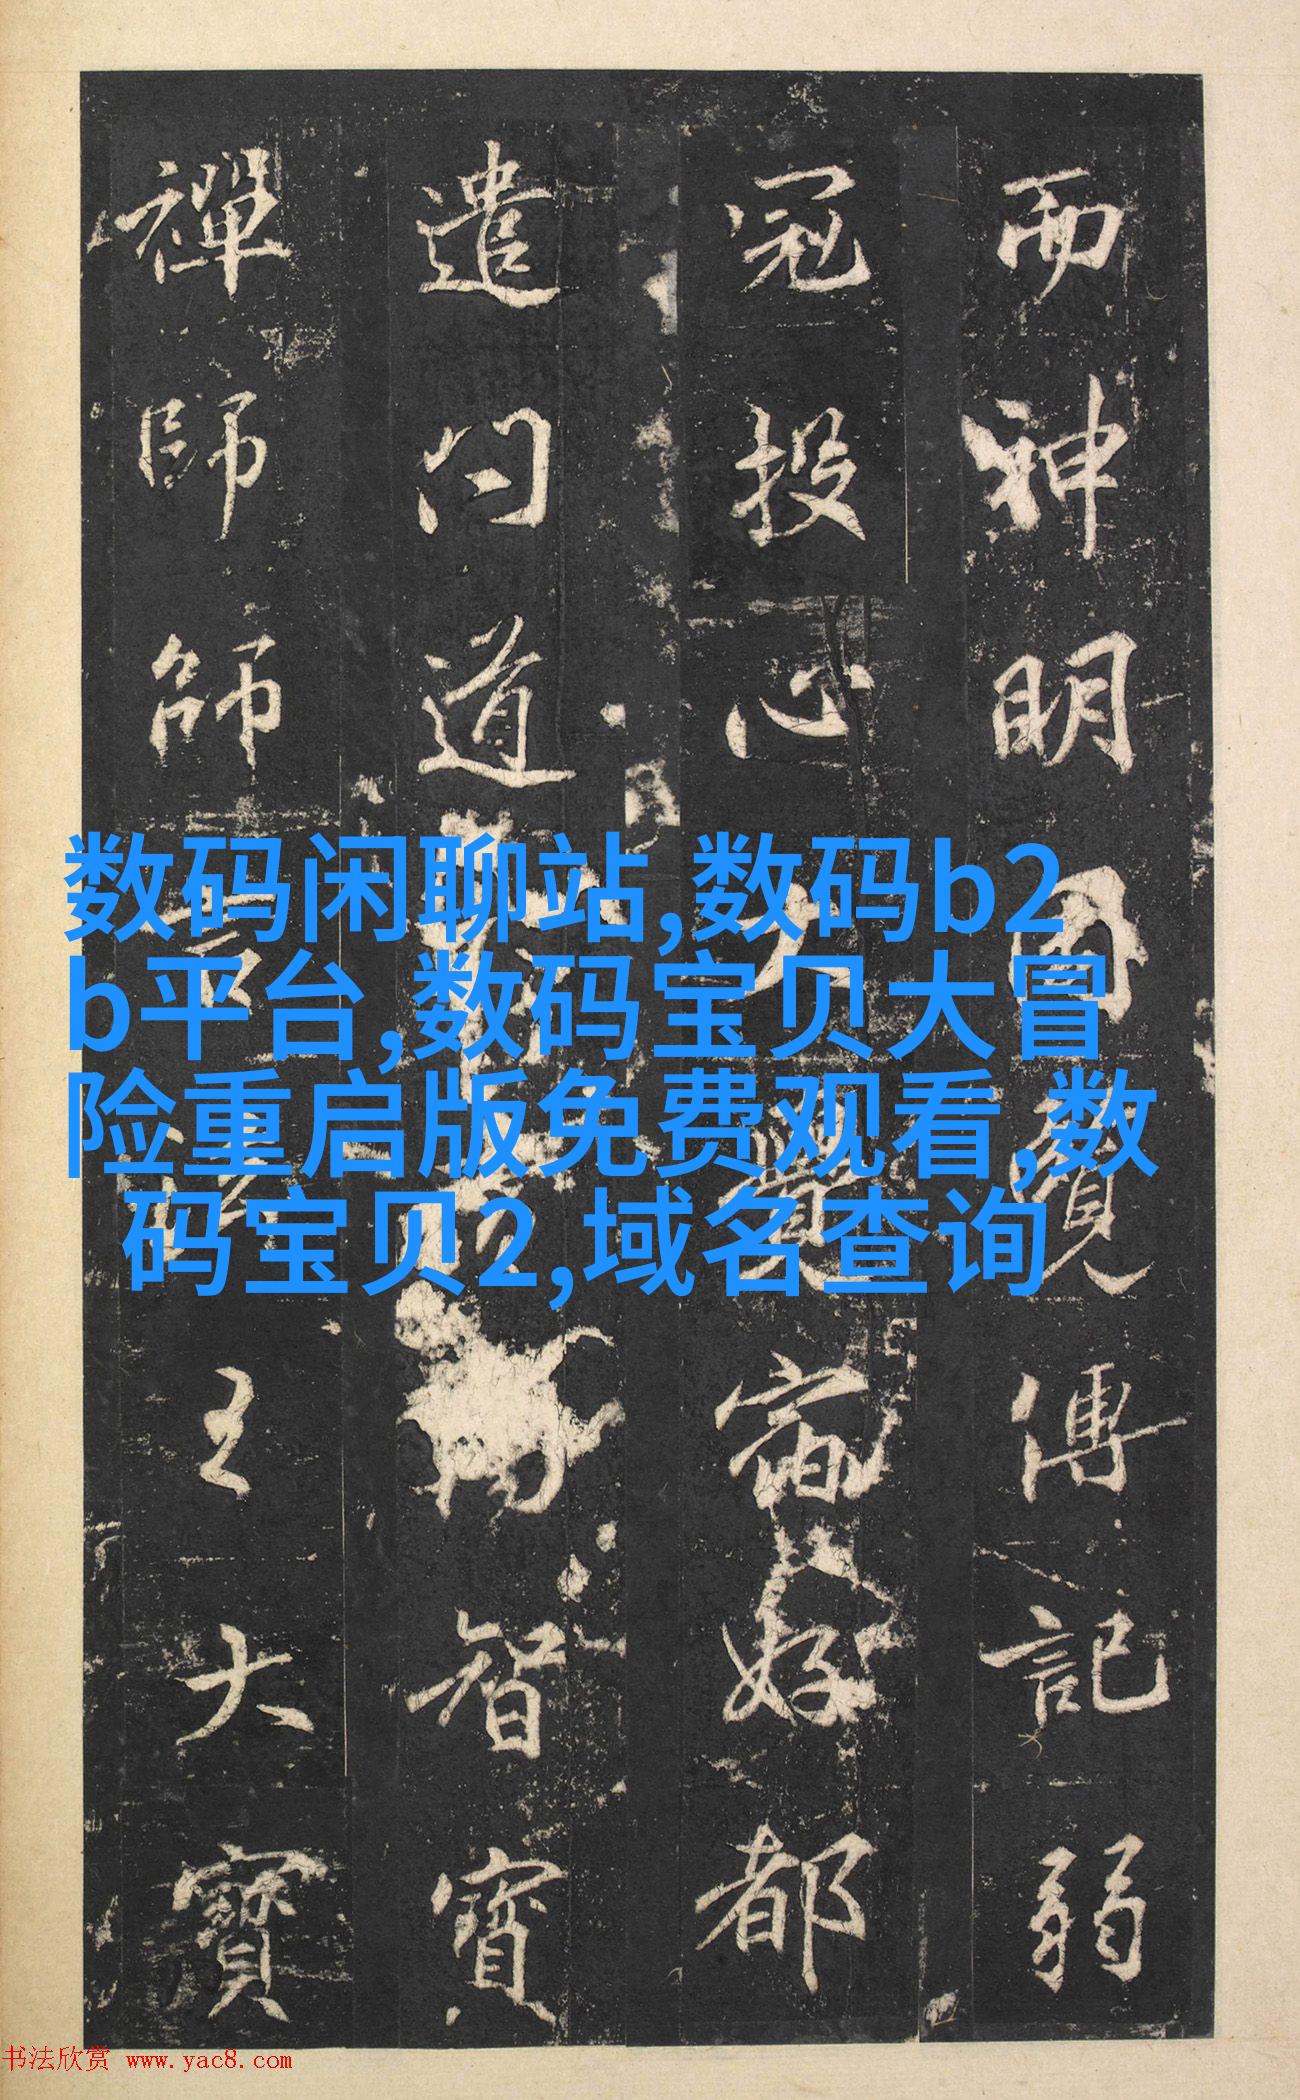 而神明覽傳記弱
冠投心覺宿好都
遣问道智寶
禪師師言王大寶
数码闲聊站,数码b2
b平台,数码宝贝大冒
险重启版免费观看,数
码宝贝2,域名查询
书法欣赏 www.yac8.com